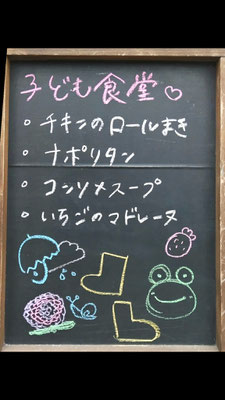 子ども食堂♡
・チキンのロールまき
・ナポリタン
・コンソメスープ
・いちごのマドレーヌ